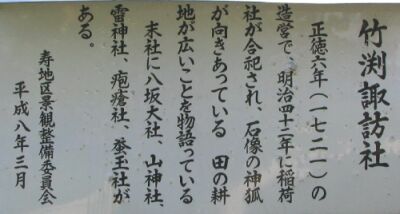 竹渕諏訪社
正徳六年(一七二一)の
造営で、明治四十二年に稲荷
社が合祀され、石像の神狐
が向きあっている 田の耕
地が広いことを物語っている
末社に八坂大社、山神社、
雷神社、疱瘡社、蚕玉社が
ある。
寿地区景観整備委員会
平成八年三月